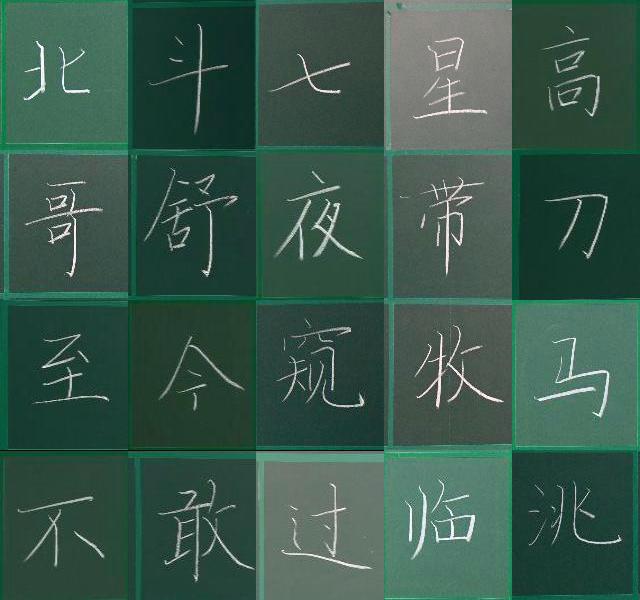 北斗七星高
哥舒夜带刀
至今窥牧马
不敢过临洮